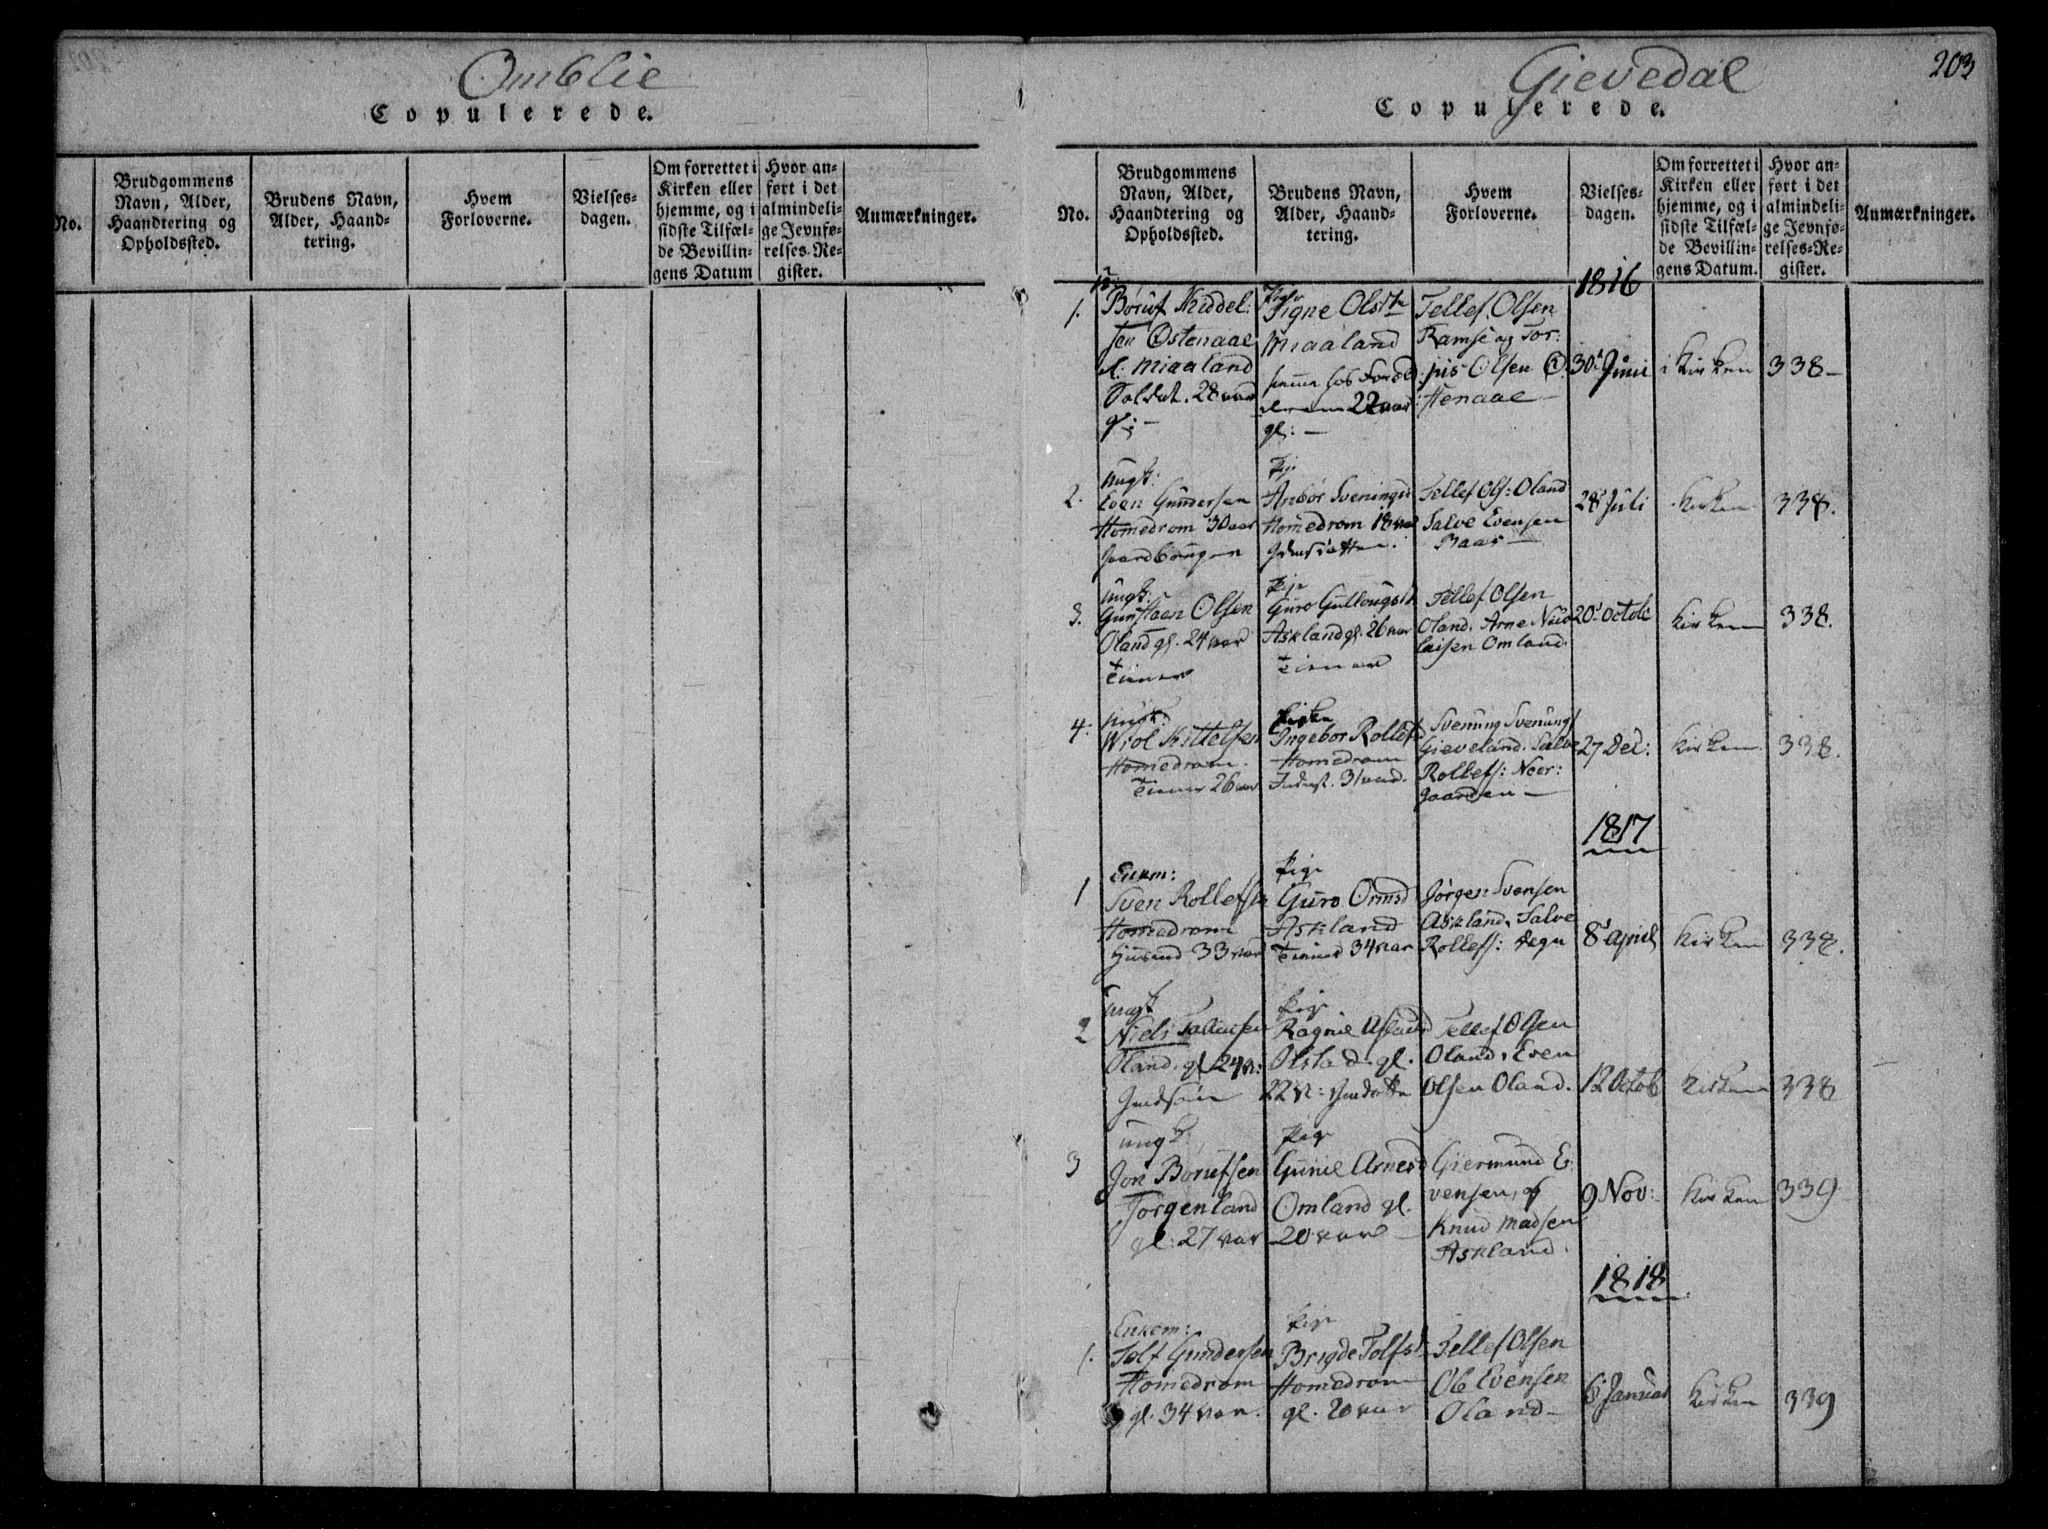 Omblie
Copulerede.
No.
Brudgommens
Navn, Alder,
Haandtering og
Opholdssted.
Brudens Navn,
Alder, Haand-
tering.
Hvem
Forloverne.
Vielses-
dagen.
Om forrettet i
Kirken eller
hjemme, og i
sidste Tilfæl-
de Bevillin-
gens Datum
Hvor an-
ført i det
almindeli-
ge Jevnfø-
relses-Re-
gister.
Anmærkninger.
Gievedal
203
Copulerede.
No.
Brudgommens
Navn, Alder,
Haandtering og
Opholdssted.
Brudens Navn,
Alder, Haand-
tering.
Hvem
Forloverne.
Vielses-
dagen.
Om forrettet i
Kirken eller
hjemme, og i
sidste Tilfæl-
de Bevillin-
gens Datum.
Hvor an-
ført i det
almindeli-
ge Jevnfø-
relses-Re-
gister.
Anmærkninger.
1816
1.
Børuf Kiddel:
sen Østenaae
Miaaland
Soldat. 28 aar
gl: —
Pige
Signe Olsd
Miaaland
22 aar
gl: —
Tellef Olsen
Ramse og Tor:
jus Olsen Ø
stenaae —
30 Juni
i Kirken
338 —
2.
Ungk:
Even Gundersen
Homedrom 30 aar
Gaardbruger
Pige
Anbør Sveningsd
Homedrom 18 aar
Tellef Ols: Oland
Salve Evensen
Baas —
28 Juli
Kirken
338.
3.
Ungk:
Gunstaen Olsen
Oland gl. 24 aar
Tiener
Pige
Guro Gullougsd
Askland gl. 26 aar
Tiener
Tellef Olsen
Oland. Arne Nico
laisen Omland.
20 octob
Kirken
338.
4.
Ungk:
Wiol Kittelsen
Homedrom.
Tiener 26 aar
Pigen
Ingebor Rollefsd
Homedrom
Inderst. 31 aar.
Svenung Svenungs
Gieveland. Salve
Rollefs: Neer:
gaarden —
27 Dec:
Kirken
338.
1817
1
Enkm:
Sven Rollefsen
Homedrom
Huusmd 33 aar
Pige
Guro Ormsd
Askland
Tiener 34 aar
Jørgen Svensen
Askland. Salve
Rollefs:
8 April
Kirken
338.
2
Ungk
Niels Salvesen
Oland. gl 24 A:
Pige
Ragnil Aslausd
Olstad. gl.
22 A:
Tellef Olsen
Oland. Even
Olsen Oland.
12 Octob
Kirken
338
3
ungk
Jon Børufsen
Torgenland
gl: 27 aar
Pige
Gunil Arnesd
Omland gl.
20 aar
Giermund E
vensen, og
Knud Madsen
Askland.
9 Nov:
Kirken
339
1818
1.
Enkem:
Tolf Gundersen
Homedrom
gl. 34 aar.
Pige
Brigde Tolfsd
Homedrom
gl. 20 aar
Tellef Olsen
Ole Evensen
Oland —
6 Januar
Kirken
339